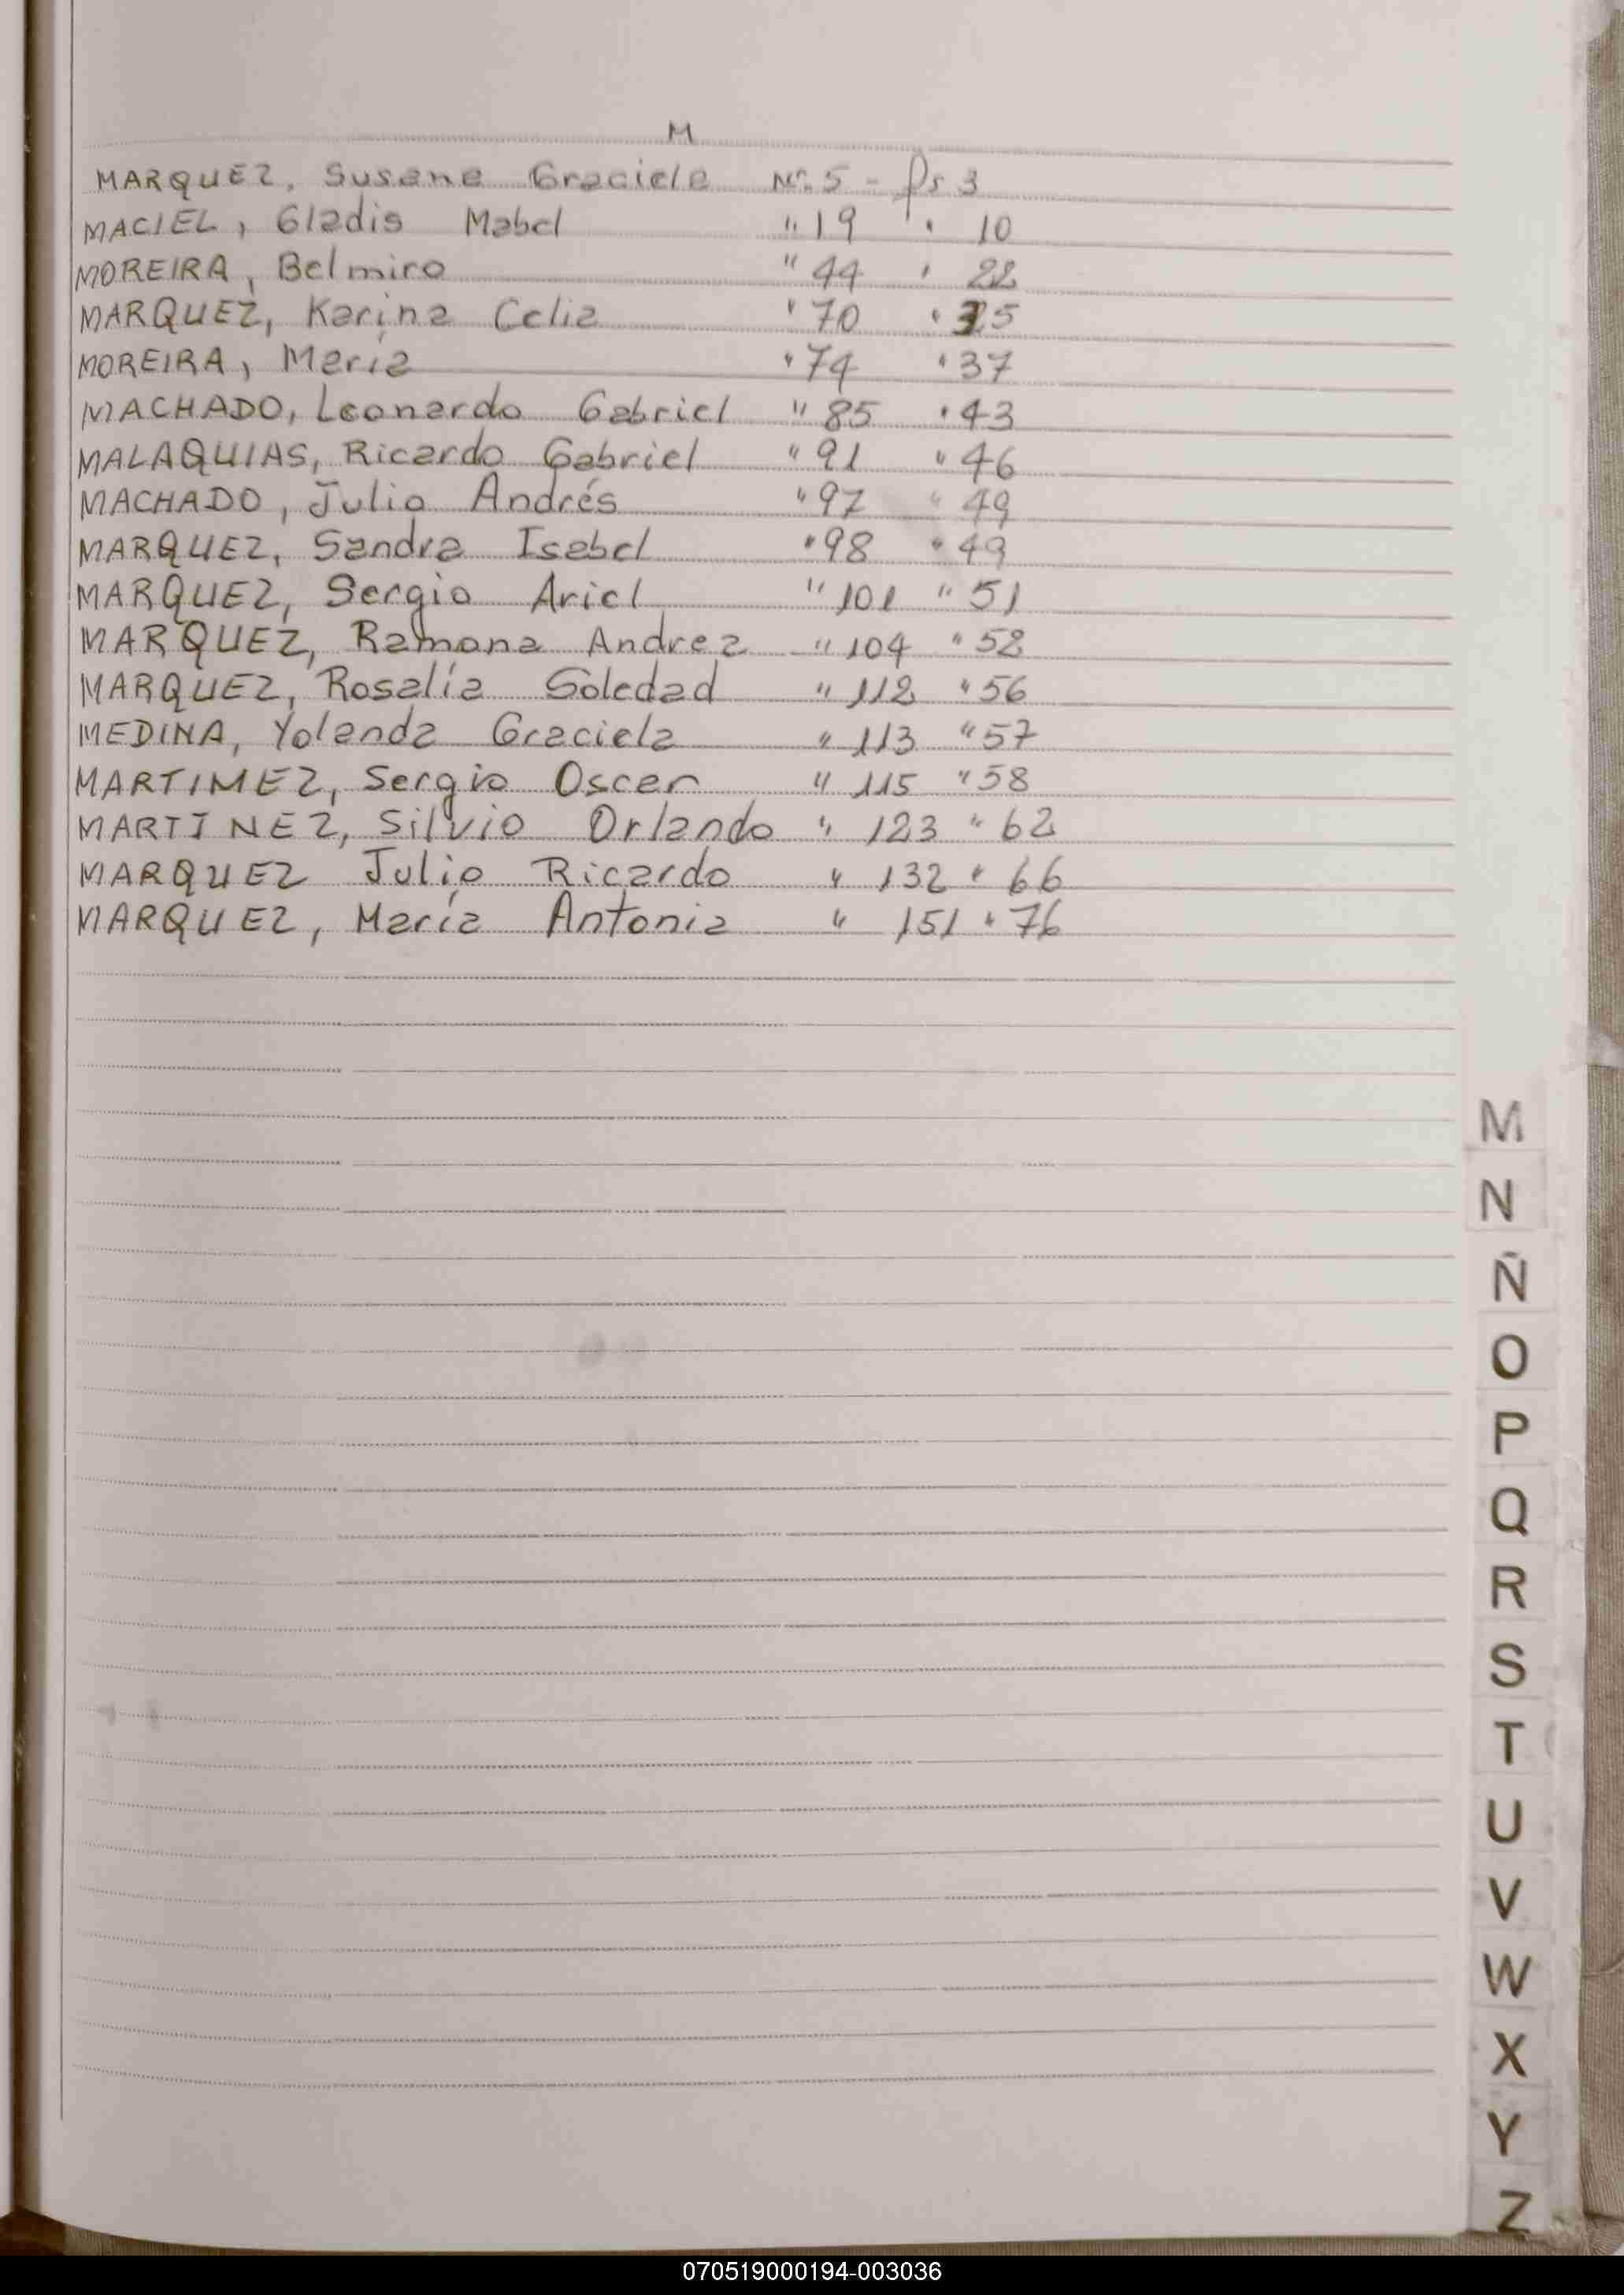 M
MARQUEZ, Susana Graciela Nº 5 - Ps 3
MACIEL, Gladis Mabel " 19 " 10
MOREIRA, Belmiro " 44 " 22
MARQUEZ, Karina Celia " 70 " 35
MOREIRA, María " 74 " 37
MACHADO, Leonardo Gabriel " 85 " 43
MALAQUIAS, Ricardo Gabriel " 91 " 46
MACHADO, Julio Andrés " 97 " 49
MARQUEZ, Sandra Isabel " 98 " 49
MARQUEZ, Sergio Ariel " 101 " 51
MARQUEZ, Ramona Andrea " 104 " 52
MARQUEZ, Rosalía Soledad " 112 " 56
MEDINA, Yolanda Graciela " 113 " 57
MARTIMEZ, Sergio Oscar " 115 " 58
MARTINEZ, Silvio Orlando " 123 " 62
MARQUEZ Julio Ricardo " 132 " 66
MARQUEZ, María Antonia " 151 " 76
M
N
Ñ
O
P
Q
R
S
T
U
V
W
X
Y
Z
070519000194-003036